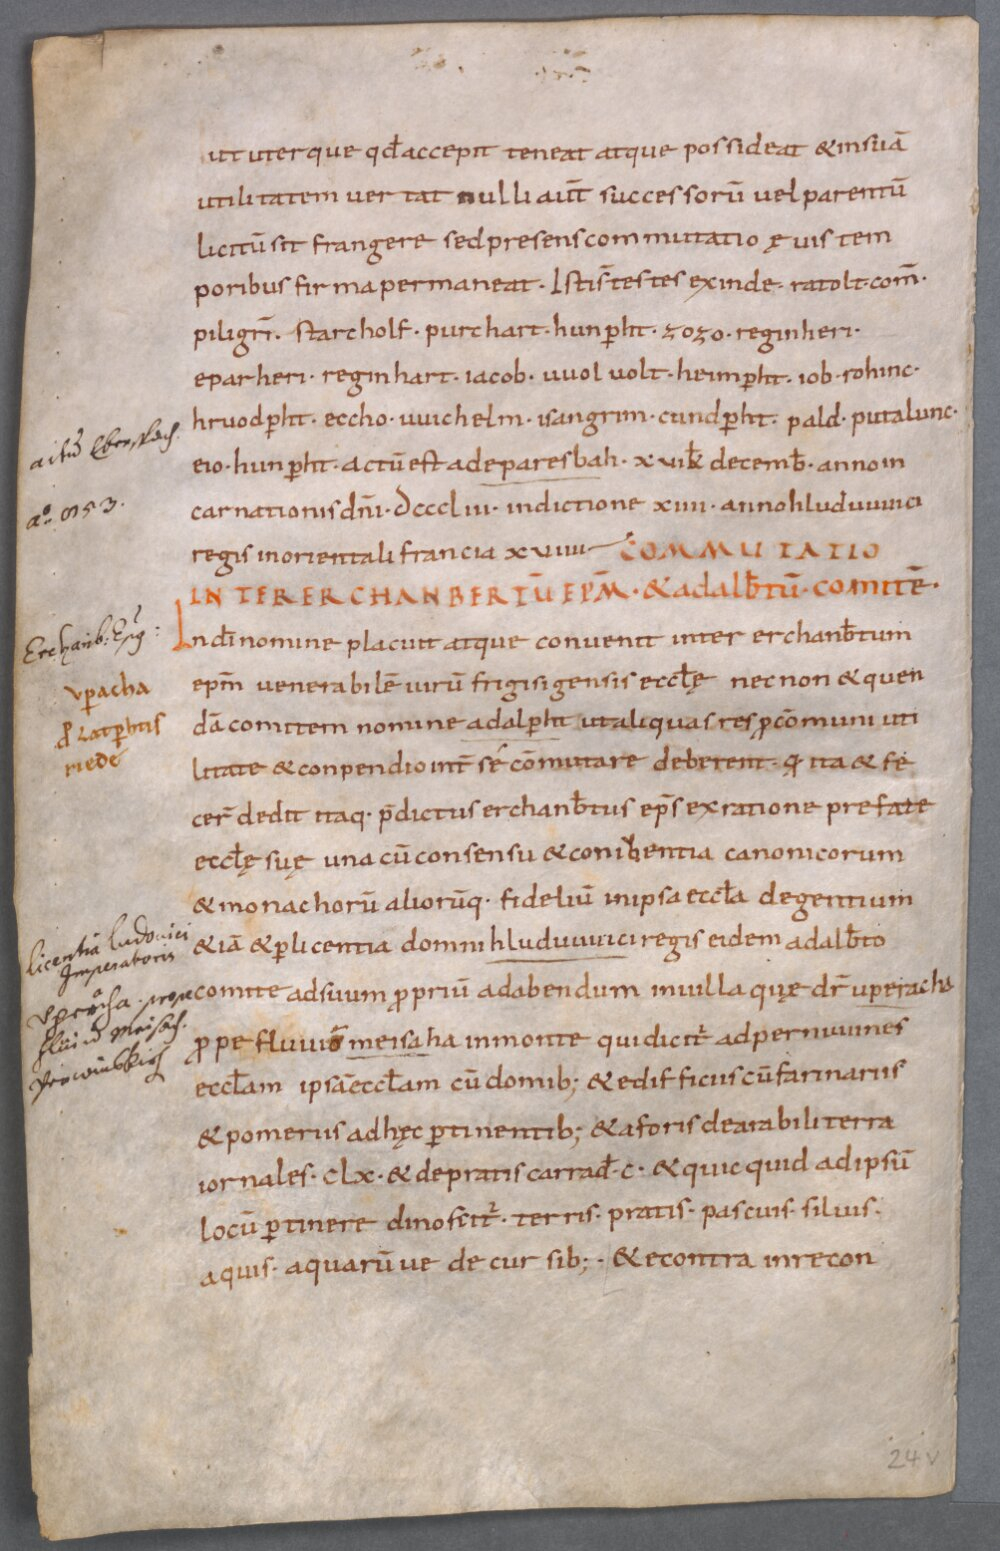 ut uterque qđ accepit teneat atque possideat & in suā
utilitatem vertat nulli aūt successorū vel parentū
licitū sit frangere sed presens commutatio ęvis tem
poribus firma permaneat. Isti s̄ testes exinde. ratolt. com̄.
piligrī. starcholf. purchart. hunp̄ht. zozo. reginheri.
eparheri. reginhart. iacob. uuoluolt. heimp̄ht. iob. rohinc.
hruodp̄ht. eccho. uuichelm. isangrim. cundp̄ht. pald. putalunc.
eio. hunp̄ht. actū est ad eparesbah. xvii k̄ decemb̄. anno in
carnationis dn̄i. dccc liii. indictione xiiii. anno hluduuuici
regis in orientali francia xviiii COMMUTATIO
INTER ERCHANBERTŪ EPM̄. & adalb̄tū. comitē.
In dī nomine placuit atque convenit inter erchanb̄tum
epm̄ venerabilē virū frigisigensis eccłę nec non & quen
dā comitem nomine adalp̄ht ut aliquas res p̄ cōmuni uti
litate & conpendio int̄ sé cōmutare deberent. q̄ ita & fe
cer̄ dedit itaq. p̄dictus erchanb̄tus ep̄s ex ratione prefate
eccłę suę una cū consensu & conibentia canonicorum
& monachorū aliorūq. fideliū in ipsa eccła degentium
& iā & p̄ licentia domni hluduuuici regis eidem adalb̄to
comite ad suum p̄priū ad abendum in villa quę dr̄ uperacha
p̄pe fluviō meisaha in monte qui dicit̄ ad pernuuines
eccłam ipsā eccłam cū domib; & edifficiis cū farinariis
& pomeriis ad hęc p̄tinentib; & aforis de arabili terra
iornales. clx. & de pratis carrad̄. c. & quicquid ad ipsū
locū p̄tinere dinoscit̄. terris. pratis. pascuis. silvis.
aquis. aquarūve decursib;. & econtra in recon
actū Eberspach.
aº. 853.
Erchanb: Eps:
vpacha
ꝓ Ratp̄htis
riede
licentia Ludovici
Imperatoris
Vperacha. prope
fluviū Meisach.
24v